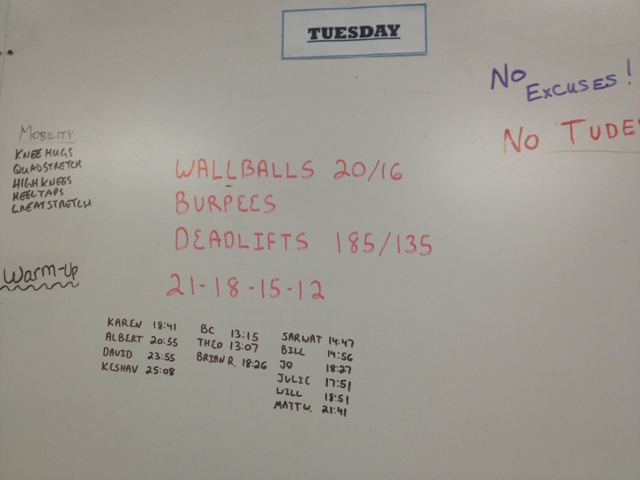 TUESDAY
No
Excuses!
No TUDES
MOBILITY
KNEE HUGS
QUADSTRETCH
HIGH KNEES
HEEL TAPS
GREATSTRETCH
WALLBALLS 20/16
BURPEES
DEADLIFTS 185/135
Warm-Up
21-18-15-12
KAREN 18:41
ALBERT 20:55
DAVID 23:55
KESHAV 25:08
BC 13:15
THEO 13:07
BRIAN R. 18:26
SARWAT 14:47
BILL 14:56
JO 18:27
JULIE 17:51
WILL 18:51
MATT W. 21:41